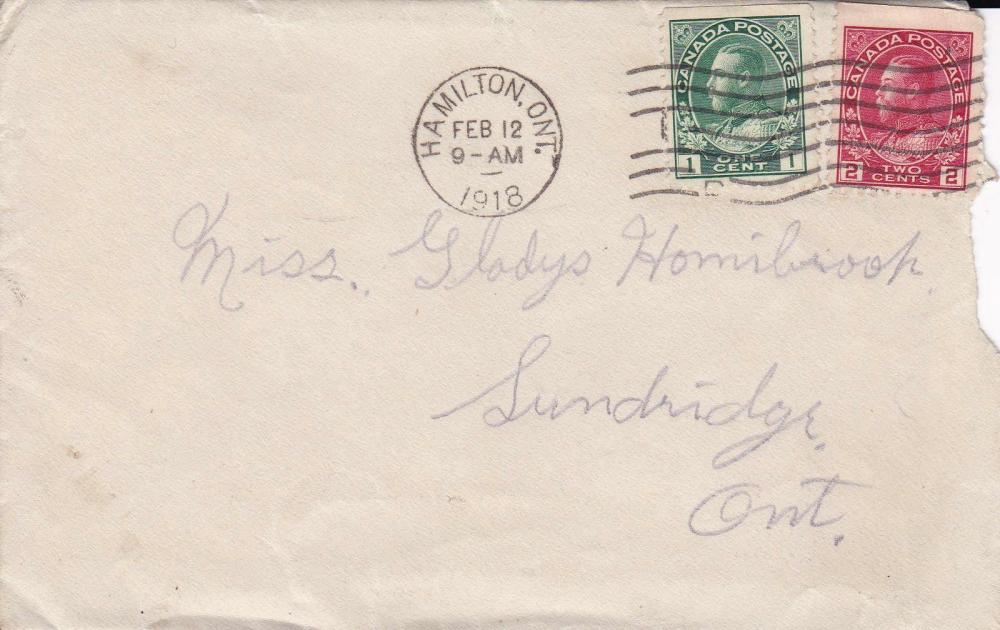 HAMILTON, ONT.
FEB 12
9-AM
1918
CANADA POSTAGE
1 ONE 1
CENT
CANADA POSTAGE
2 TWO 2
CENTS
Miss. Gladys Homibrook.
Sundridge,
Ont.